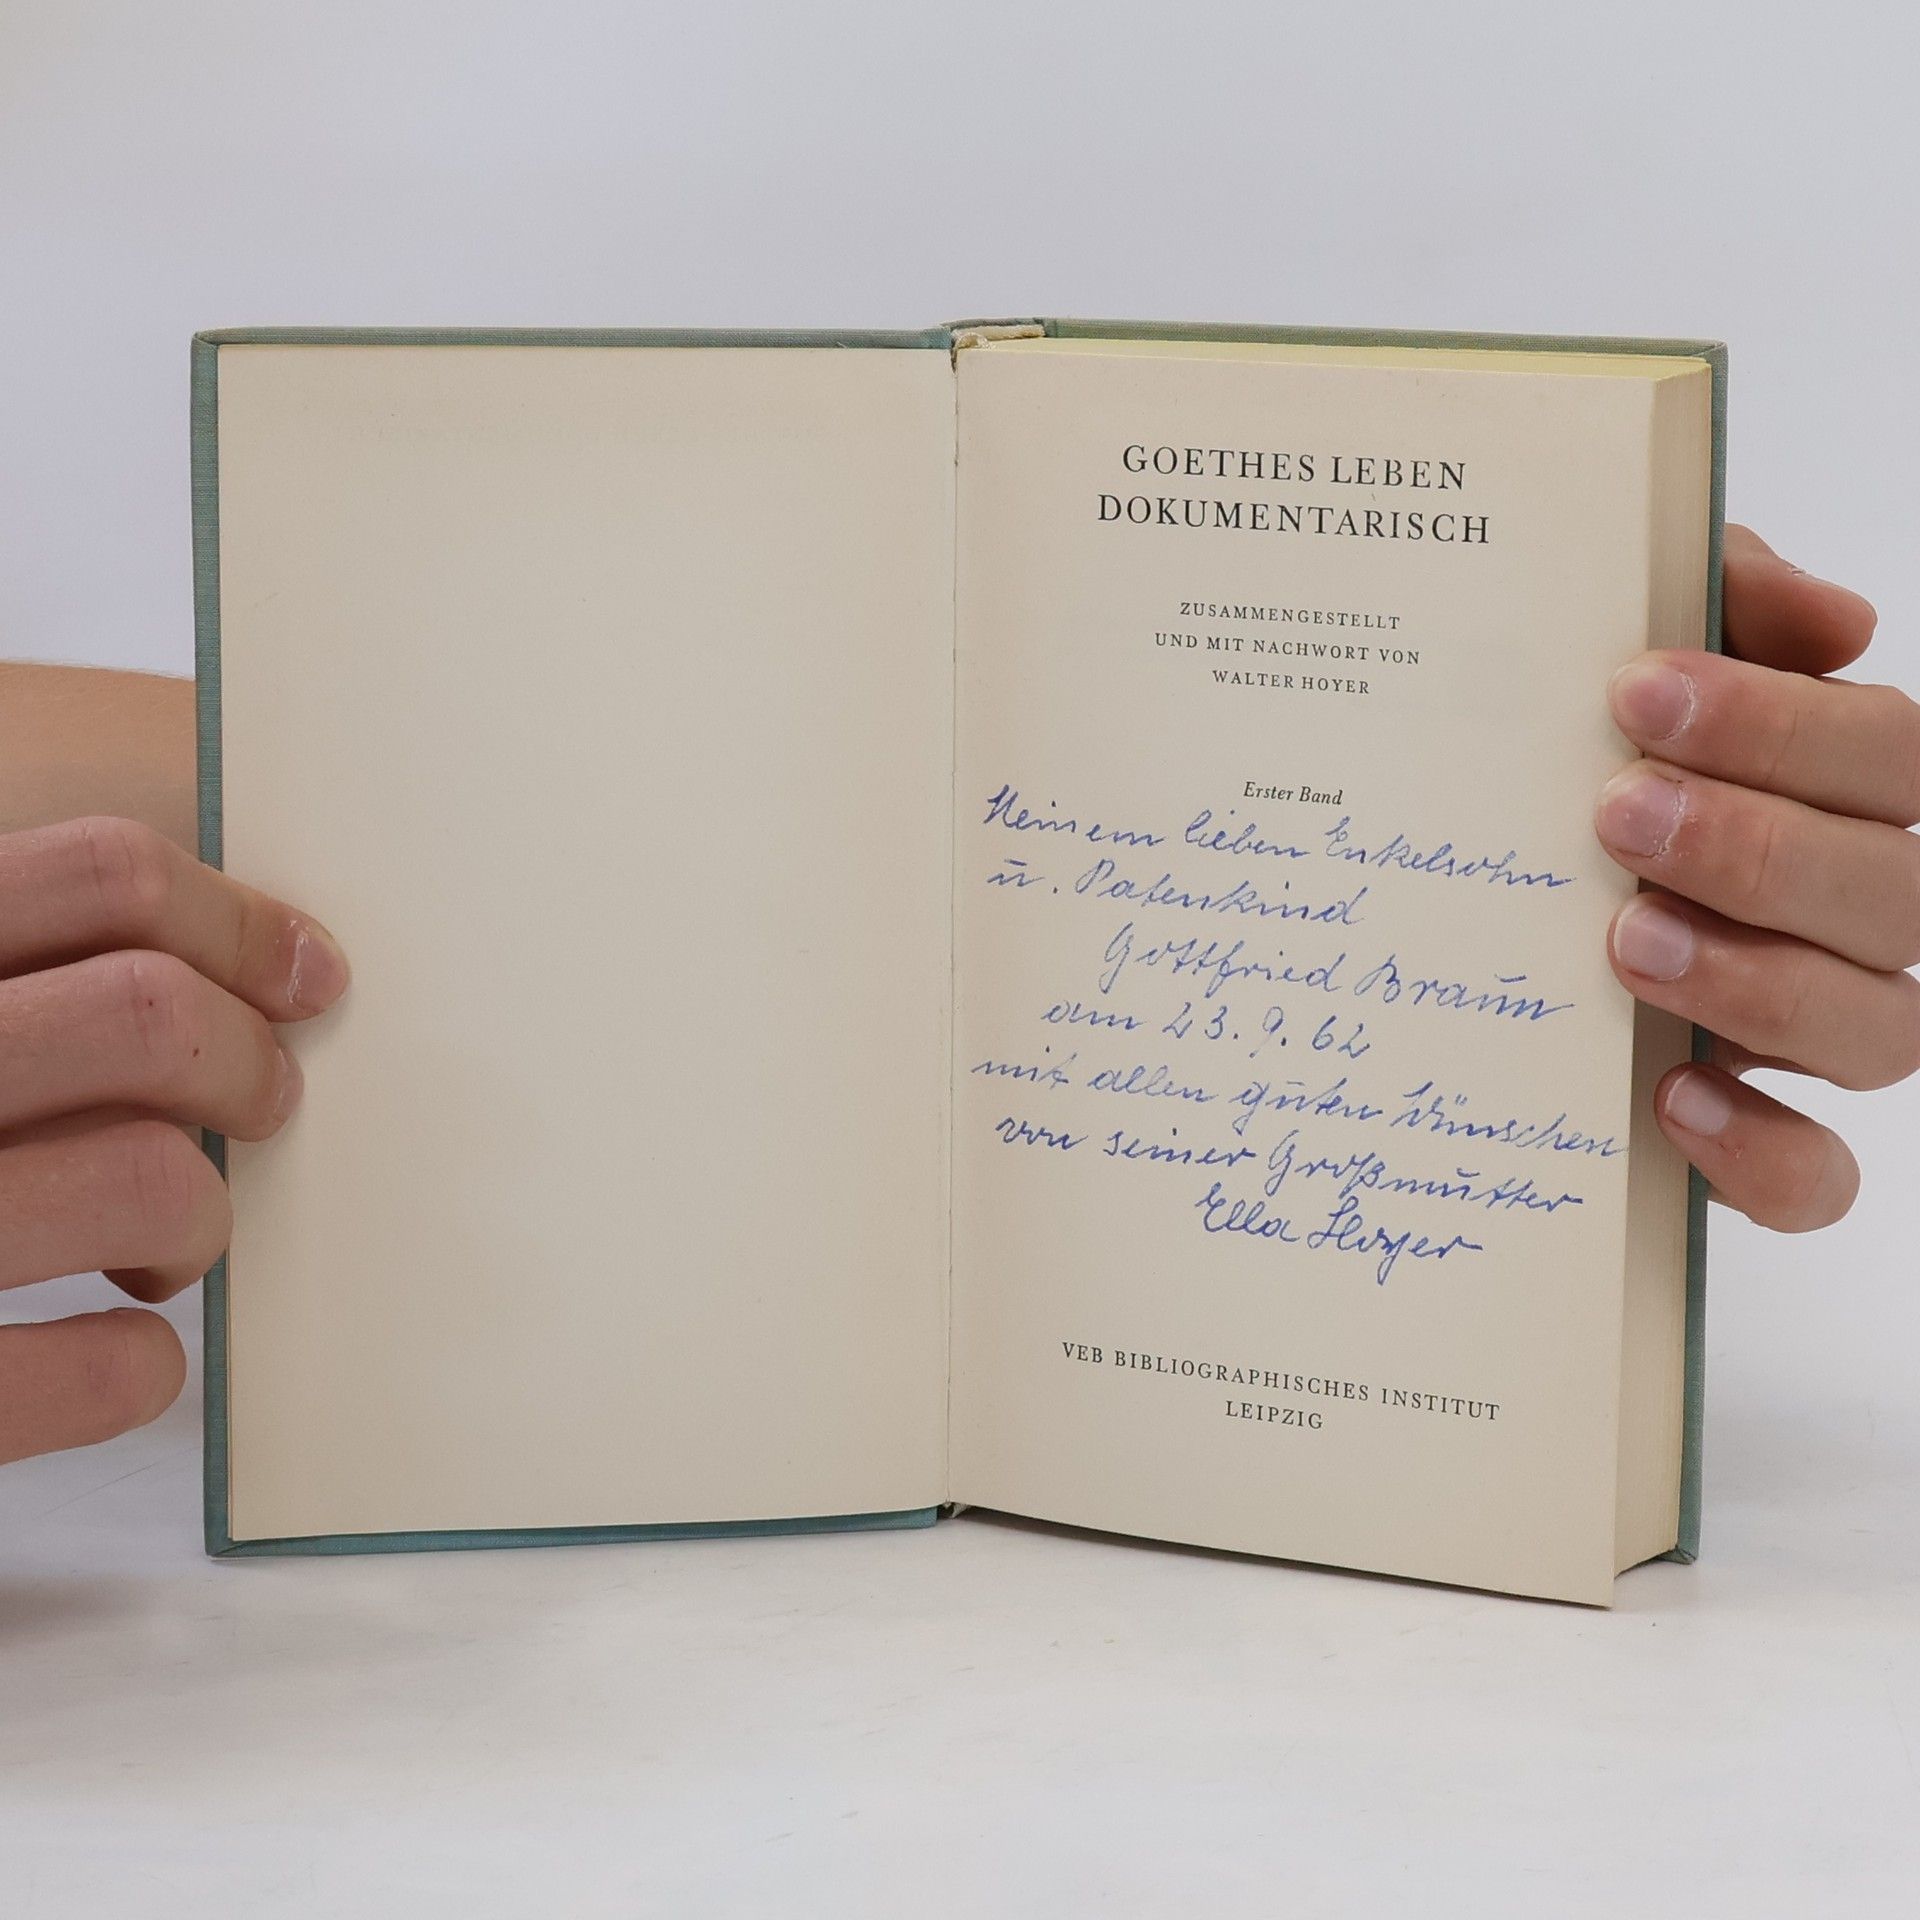 GOETHES LEBEN
DOKUMENTARISCH
ZUSAMMENGESTELLT
UND MIT NACHWORT VON
WALTER HOYER
Erster Band
Meinem lieben Enkelsohn
u. Patenkind
Gottfried Braun
am 23. 9. 62
mit allen guten Wünschen
von seiner Großmutter
Ella Hoyer
VEB BIBLIOGRAPHISCHES INSTITUT
LEIPZIG